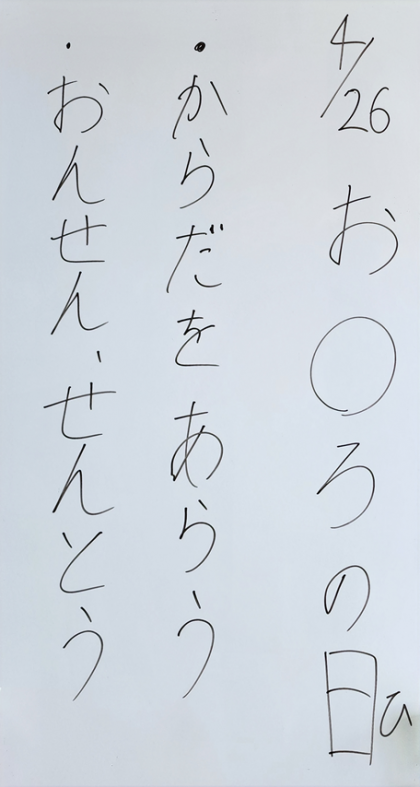 4/26 お○ろの日
ひ
・からだをあらう
・おんせん、せんとう